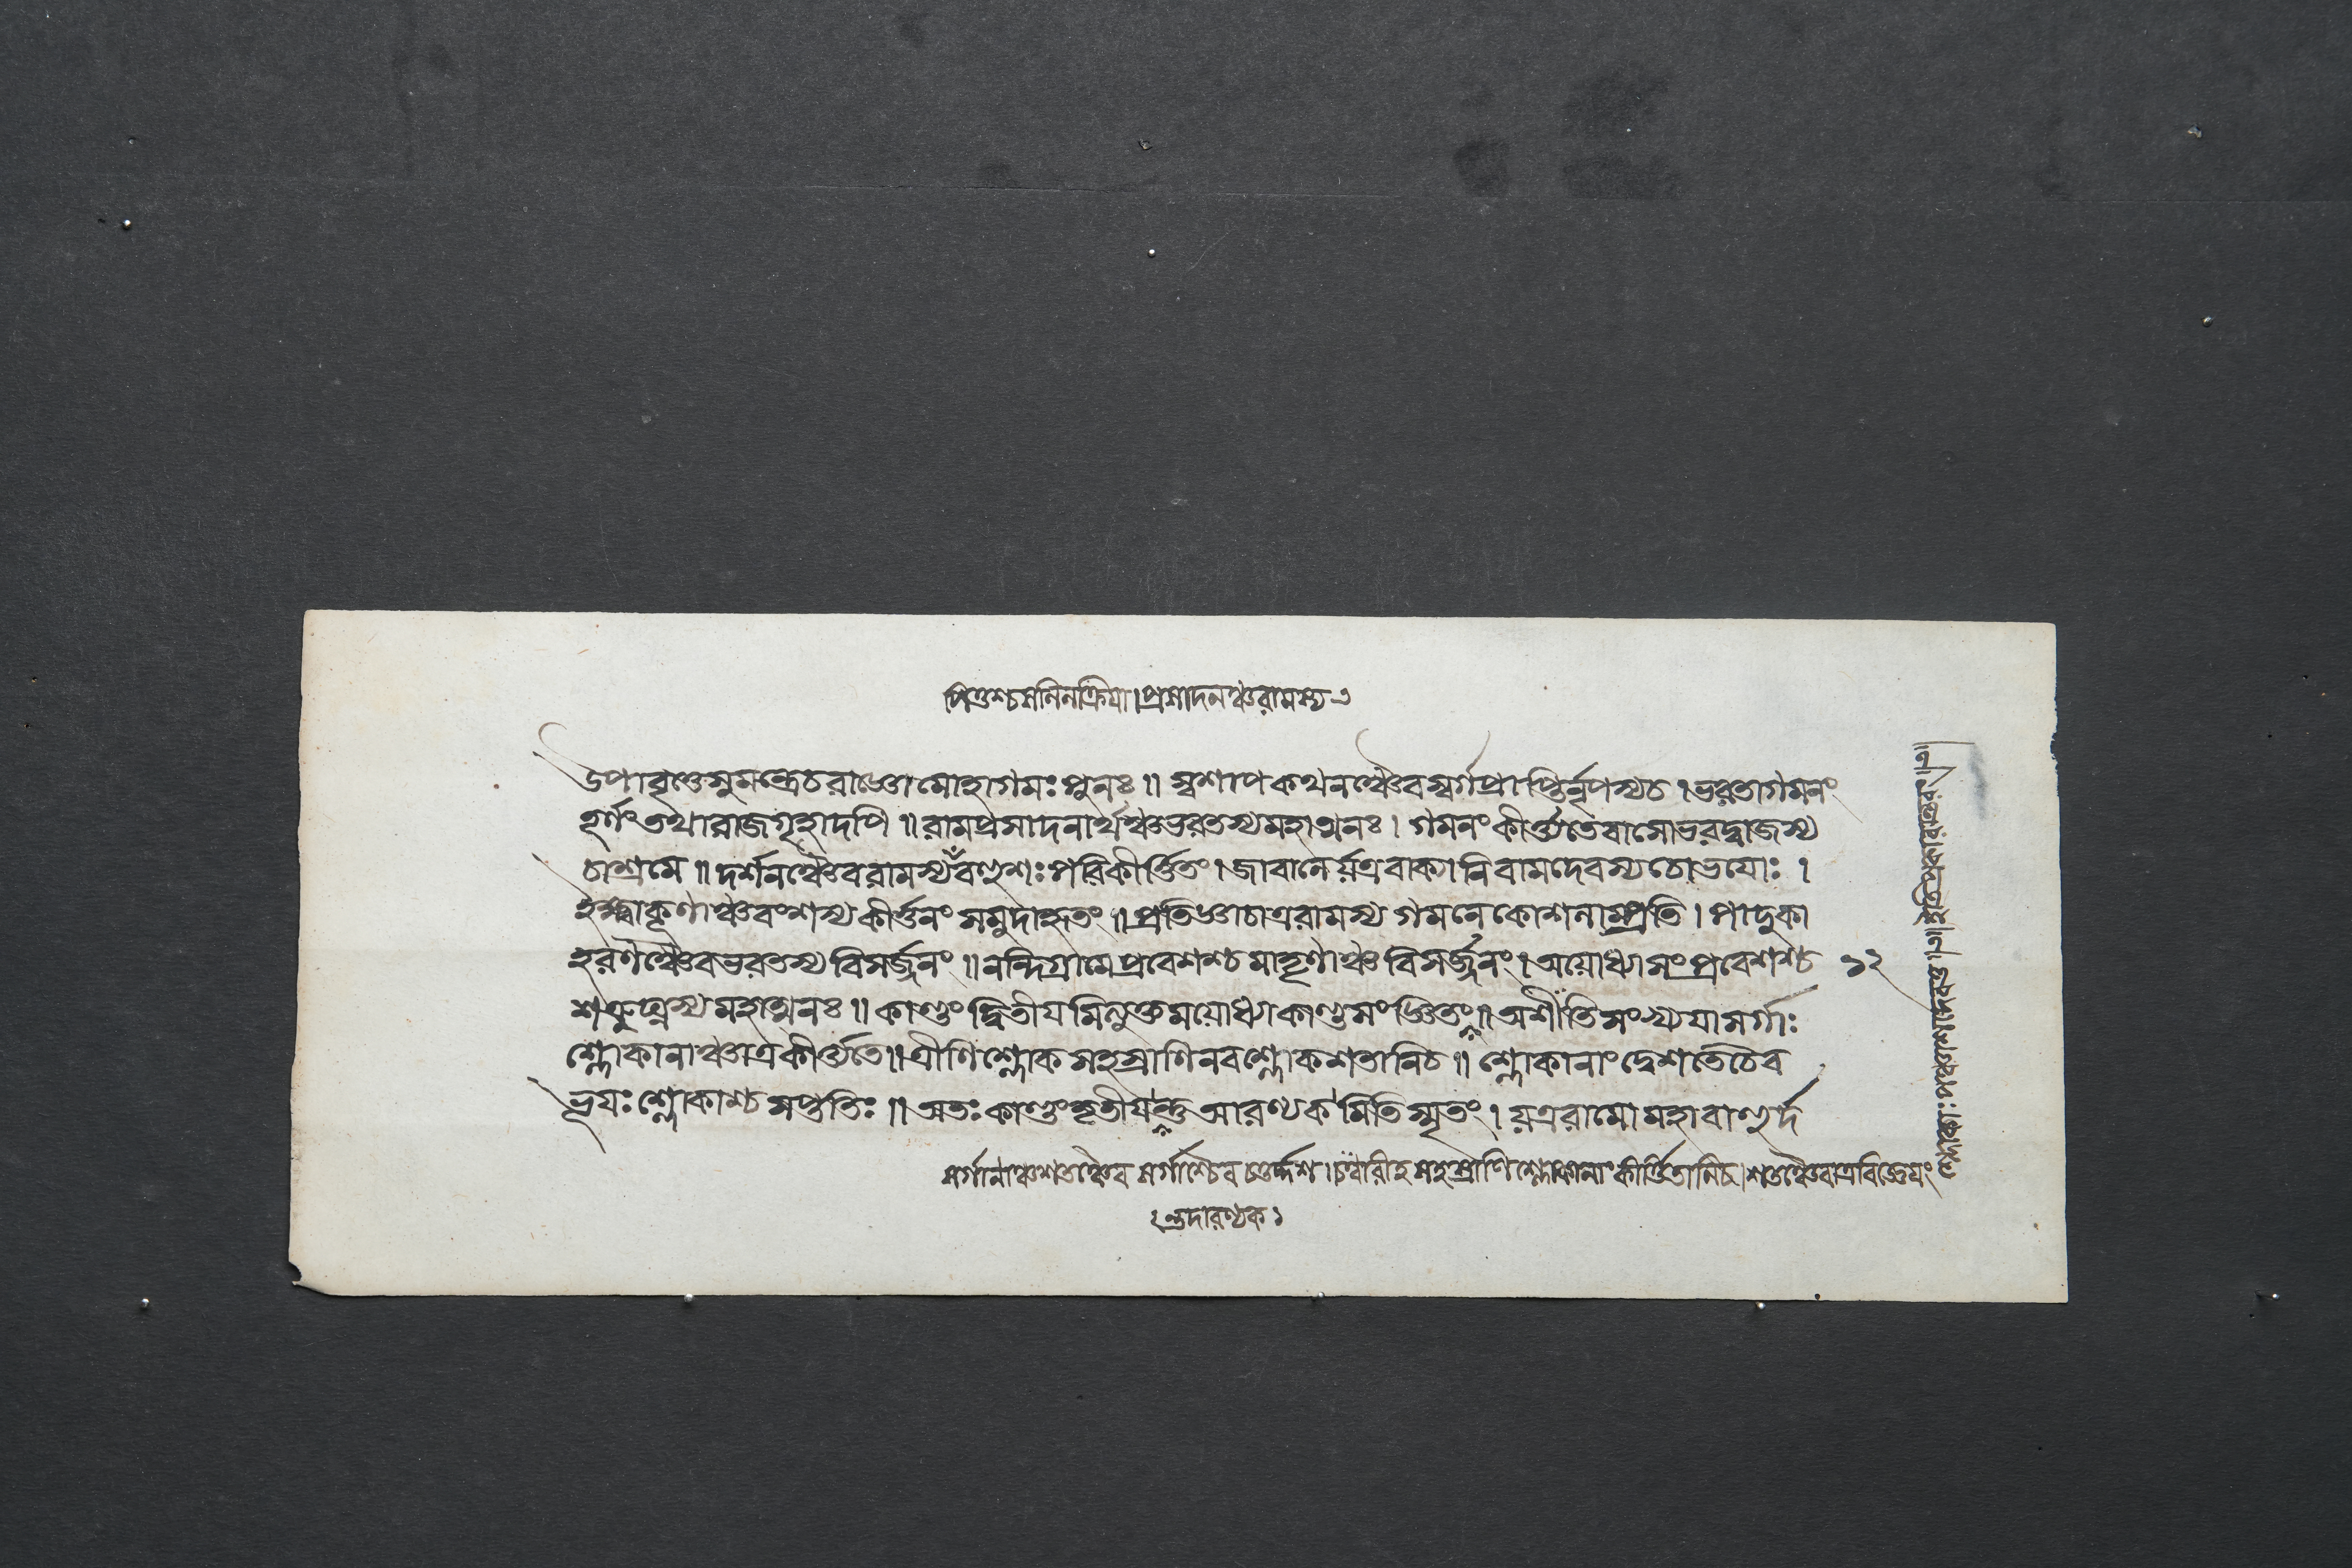 পিতুশ্চ সলিলক্রিয়া। প্রসাদনঞ্চ রামস্য ১
উপাবৃত্তে সুমন্ত্রে চ রাজ্ঞো মোহাগমঃ পুনঃ ॥ স্বশাপকথনঞ্চৈব স্বর্গপ্রাপ্তির্নৃপস্য চ । ভরতাগমনং
তূর্ণং তথা রাজগৃহাদপি ॥ রামপ্রসাদনার্থঞ্চ ভরতস্য মহাত্মনঃ । গমনং কীর্ত্ত্যতে বাসো ভরদ্বাজস্য
চাশ্রমে ॥ দর্শনঞ্চৈব রামস্য বহুশঃ পরিকীর্ত্তিতং । জাবালের্যত্র বাক্যানি বামদেবস্য চোভয়োঃ ।
ইক্ষ্বাকূণাঞ্চ বংশস্য কীর্ত্তনং সমুদাহৃতং ॥ প্রতিজ্ঞা চাত্র রামস্য গমনে কোশলাম্প্রতি । পাদুকা
হরণঞ্চৈব ভরতস্য বিসর্জ্জনং ॥ নন্দিগ্রামে প্রবেশশ্চ মাতৃণাঞ্চ বিসর্জ্জনং । অযোধ্যাসংপ্রবেশশ্চ ১২
শত্রুঘ্নস্য মহাত্মনঃ ॥ কাণ্ডং দ্বিতীয়মিত্যুক্তময়োধ্যাকাণ্ডসংজ্ঞিতং ॥ অশীতি সংখ্যয়া সর্গাঃ
শ্লোকানাঞ্চাত্র কীর্ত্ত্যতে ॥ ত্রীণি শ্লোকসহস্রাণি নবশ্লোকশতানি চ ॥ শ্লোকানাং দ্বে শতে চৈব
ভূয়ঃ শ্লোকাশ্চ সপ্ততিঃ ॥ অতঃ কাণ্ডং তৃতীয়ন্তু আরণ্যকমিতি স্মৃতং । যত্র রামো মহাবাহুর্দ
সর্গানাঞ্চ শতঞ্চৈব সর্গাশ্চৈব চতুর্দ্দশ । চত্বারীহ সহস্রাণি শ্লোকানাং কীর্ত্তিতানি চ । শতঞ্চৈবাত্র বিজ্ঞেয়ং
ন্তদারণ্যক ১
শ্লোকাঃ